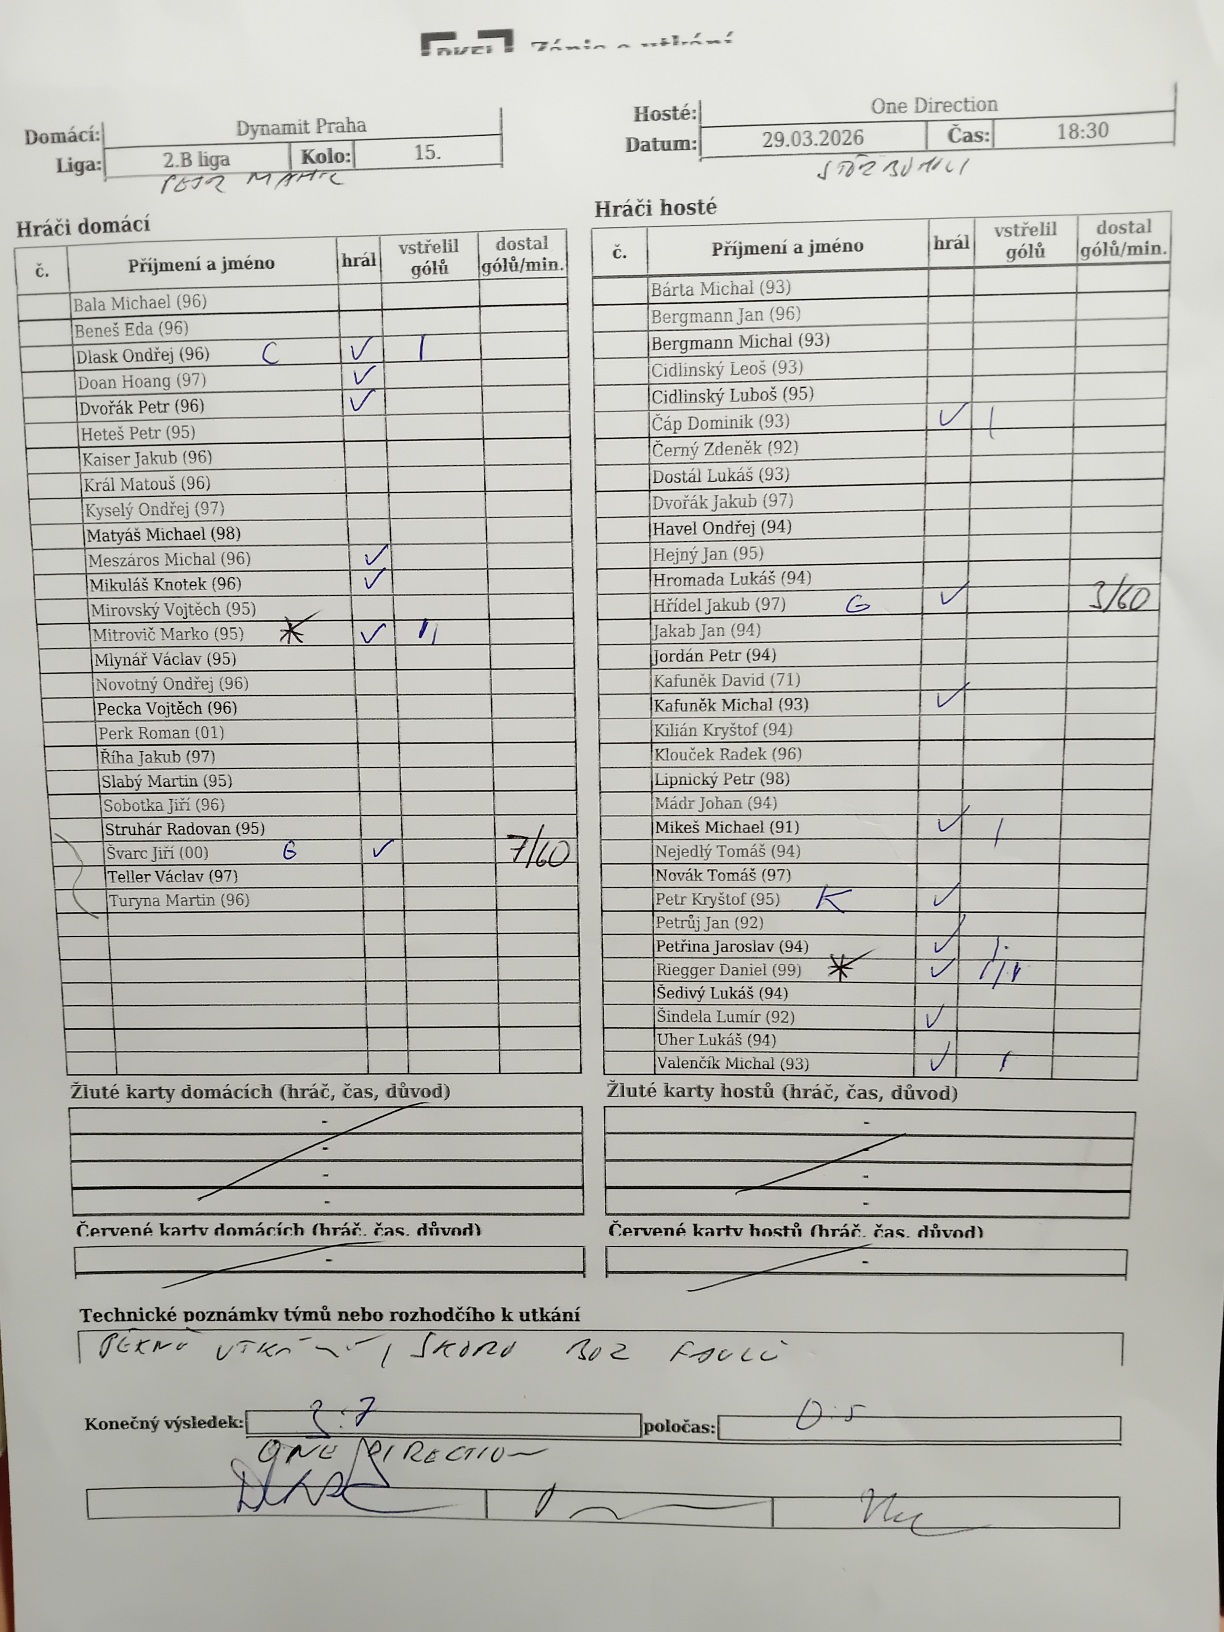 Zápis o utkání
Domácí: Dynamit Praha
Liga: 2.B liga Kolo: 15.
PETR
Hosté: One Direction
Datum: 29.03.2026 Čas: 18:30
Hráči domácí
č. Příjmení a jméno hrál vstřelil gólů dostal gólů/min.
Bala Michael (96)
Beneš Eda (96)
Dlask Ondřej (96) C ✓ I
Doan Hoang (97) ✓
Dvořák Petr (96) ✓
Heteš Petr (95)
Kaiser Jakub (96)
Král Matouš (96)
Kyselý Ondřej (97)
Matyáš Michael (98)
Meszáros Michal (96) ✓
Mikuláš Knotek (96) ✓
Mirovský Vojtěch (95)
Mitrovič Marko (95) * ✓ II
Mlynář Václav (95)
Novotný Ondřej (96)
Pecka Vojtěch (96)
Perk Roman (01)
Říha Jakub (97)
Slabý Martin (95)
Sobotka Jiří (96)
Struhár Radovan (95)
Švarc Jiří (00) G ✓ 7/60
Teller Václav (97)
Turyna Martin (96)
Hráči hosté
č. Příjmení a jméno hrál vstřelil gólů dostal gólů/min.
Bárta Michal (93)
Bergmann Jan (96)
Bergmann Michal (93)
Cidlinský Leoš (93)
Cidlinský Luboš (95)
Čáp Dominik (93) ✓ I
Černý Zdeněk (92)
Dostál Lukáš (93)
Dvořák Jakub (97)
Havel Ondřej (94)
Hejný Jan (95)
Hromada Lukáš (94)
Hřídel Jakub (97) G ✓ 3/60
Jakab Jan (94)
Jordán Petr (94)
Kafuněk David (71)
Kafuněk Michal (93) ✓
Kilián Kryštof (94)
Klouček Radek (96)
Lipnický Petr (98)
Mádr Johan (94)
Mikeš Michael (91) ✓ I
Nejedlý Tomáš (94)
Novák Tomáš (97)
Petr Kryštof (95) K ✓
Petrůj Jan (92)
Petřina Jaroslav (94) ✓ I
Riegger Daniel (99) * ✓ III
Šedivý Lukáš (94)
Šindela Lumír (92) ✓
Uher Lukáš (94)
Valenčík Michal (93) ✓ I
Žluté karty domácích (hráč, čas, důvod)
-
-
-
-
Žluté karty hostů (hráč, čas, důvod)
-
-
-
-
Červené karty domácích (hráč, čas, důvod)
-
Červené karty hostů (hráč, čas, důvod)
-
Technické poznámky týmů nebo rozhodčího k utkání
PĚKNÉ UTKÁNÍ, SKORO BEZ FAULŮ
Konečný výsledek: 3:7 poločas: 0:5
ONE DIRECTION